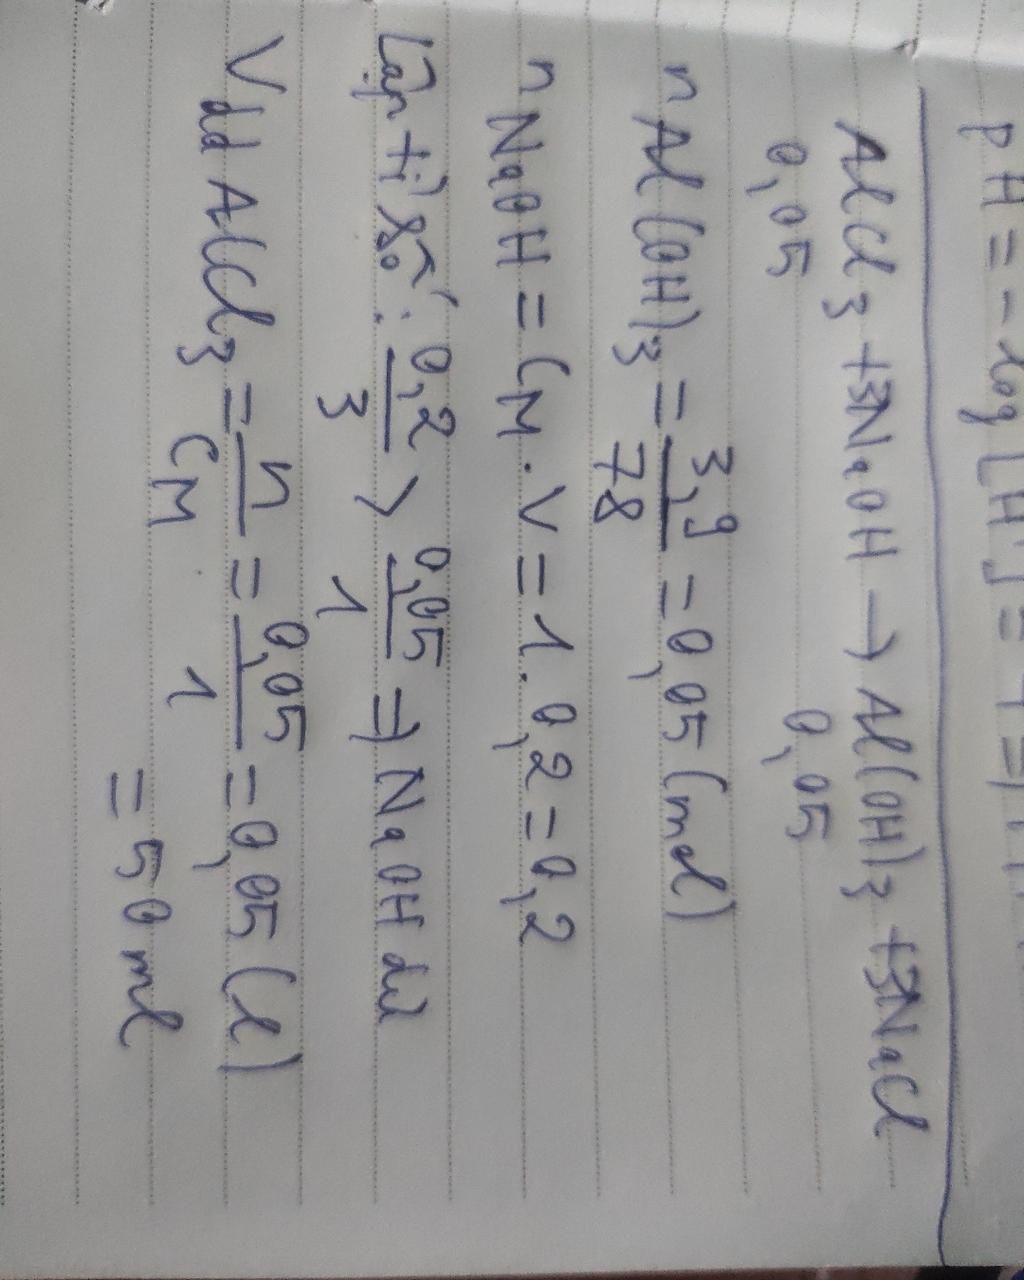 pH = -log[H⁺] =
AlCl₃ + 3NaOH → Al(OH)₃ + 3NaCl
0,05 0,05
n Al(OH)₃ = 3,9/78 = 0,05 (mol)
n NaOH = CM . V = 1. 0,2 = 0,2
Lập tỉ số: 0,2/3 > 0,05/1 ⇒ NaOH dư
V dd AlCl₃ = n/CM = 0,05/1 = 0,05 (l)
= 50 ml